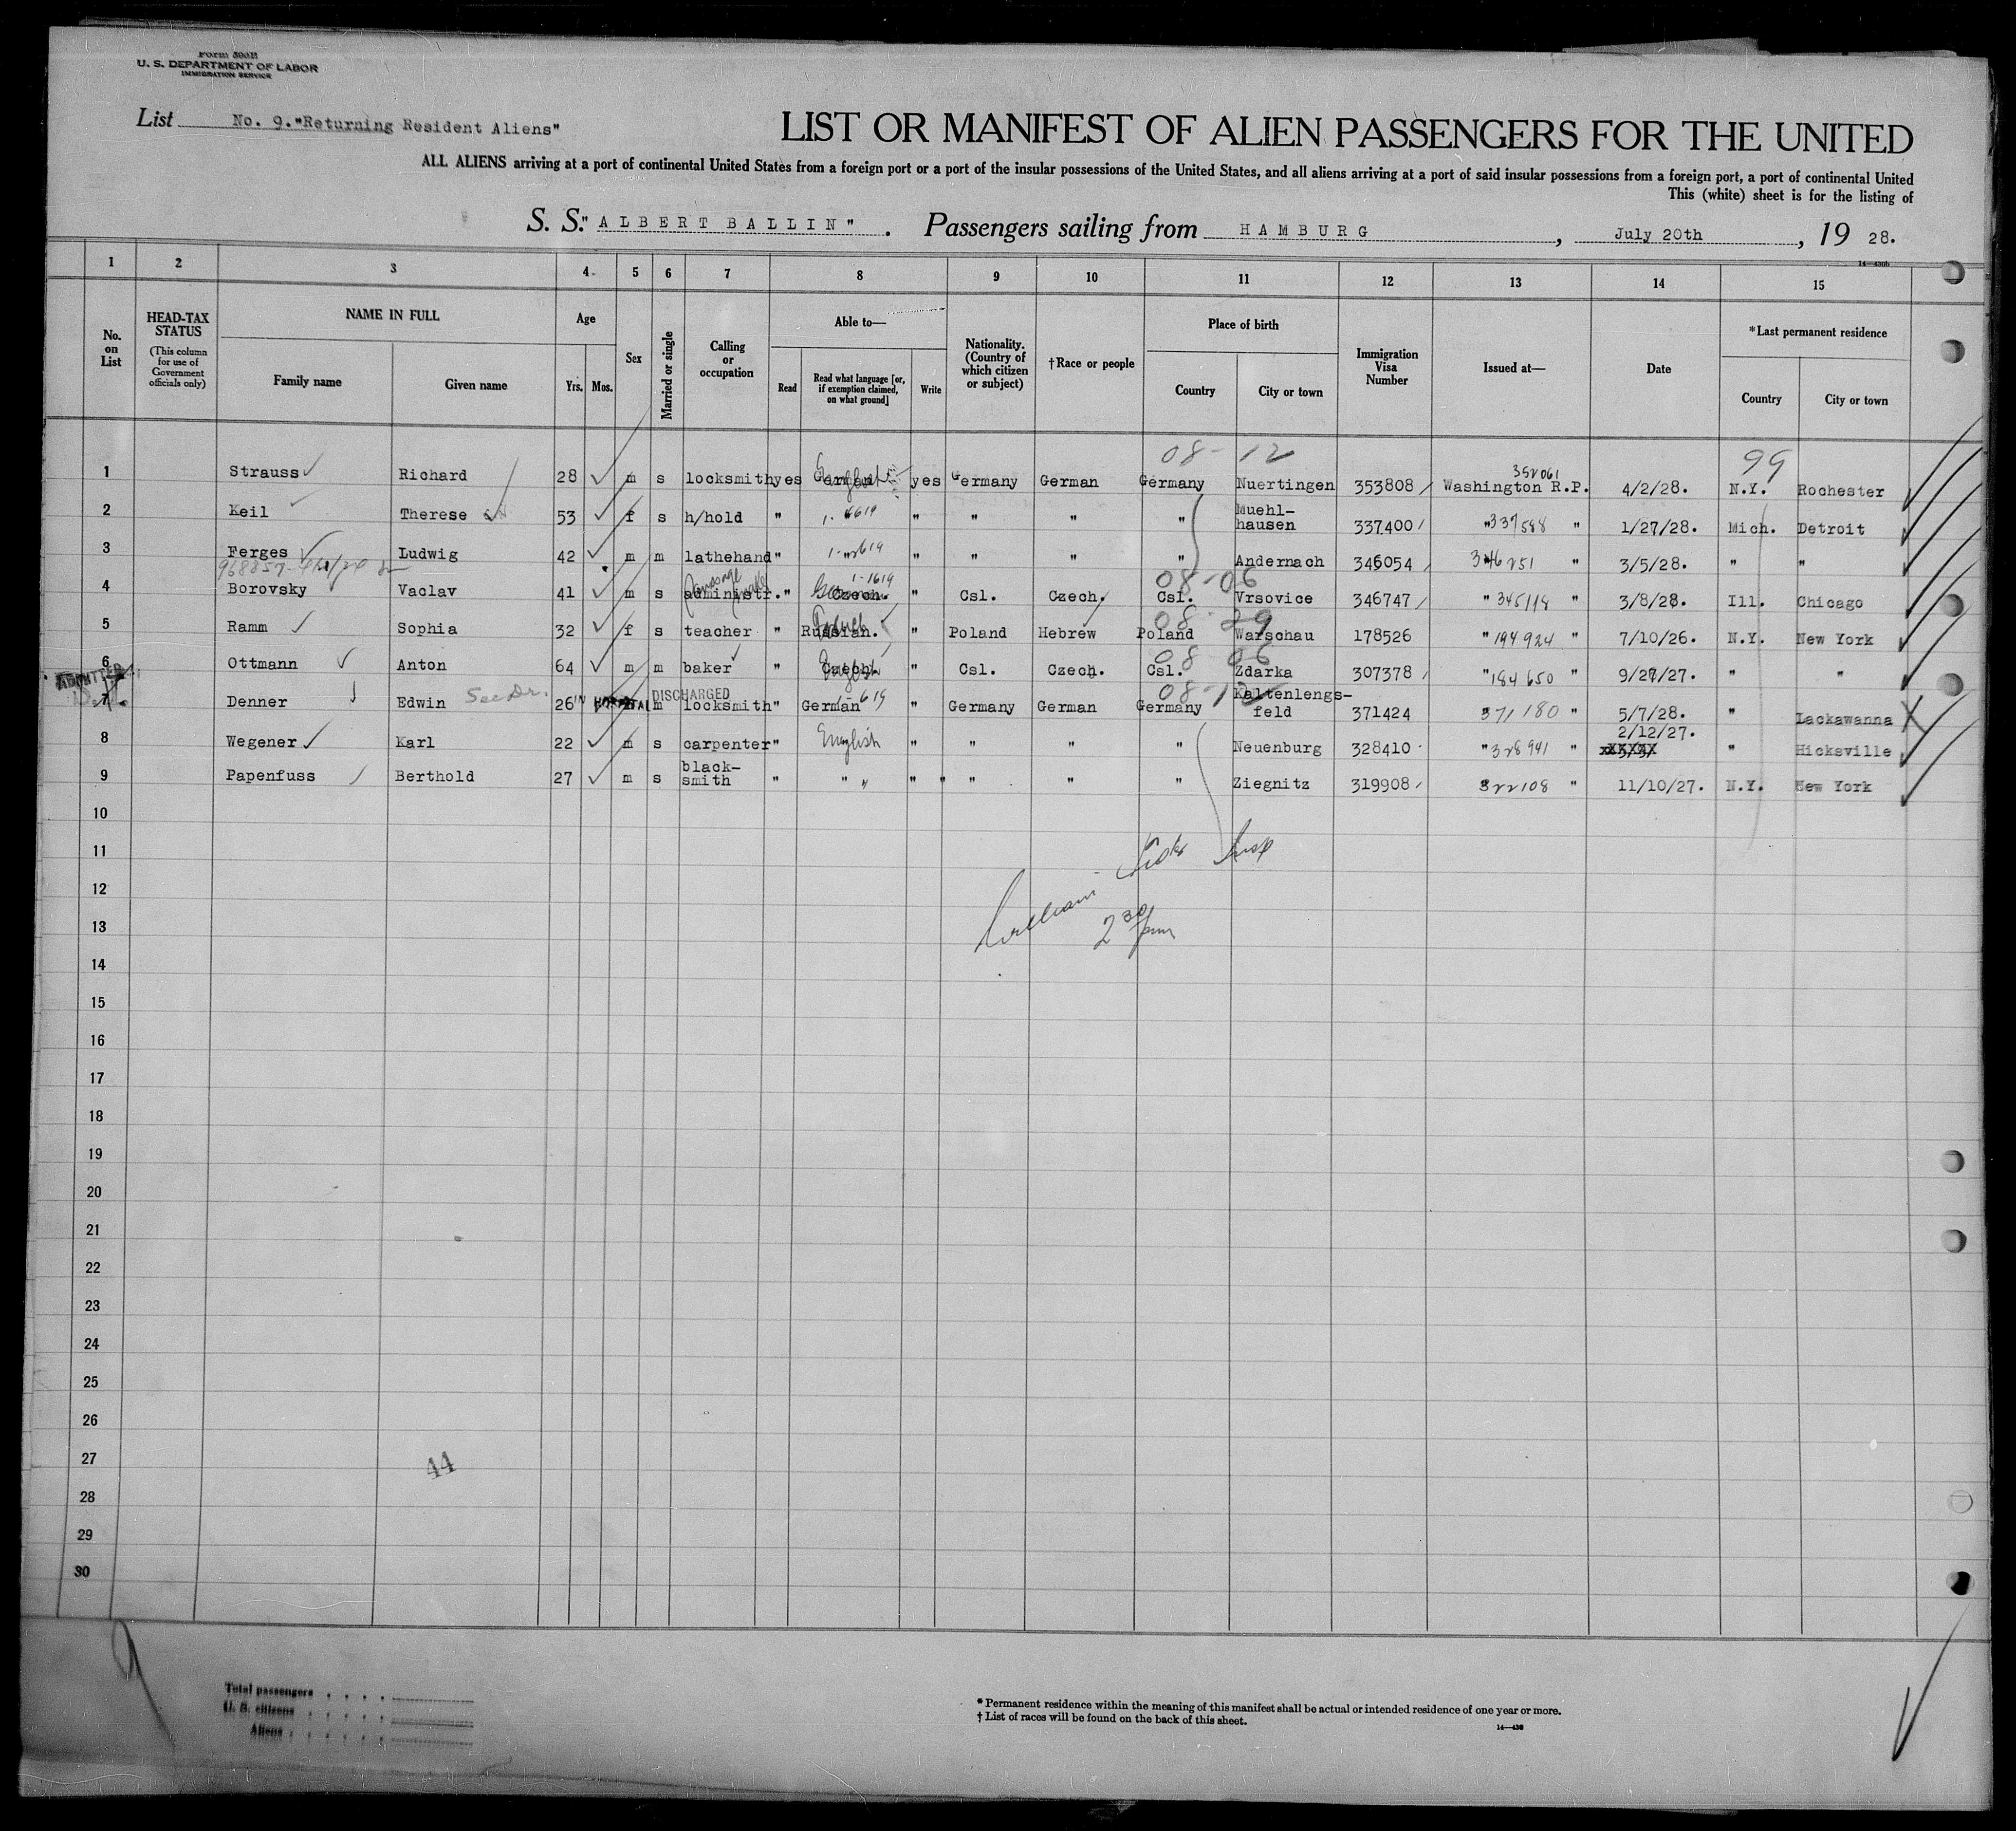 Form 500B
U. S. DEPARTMENT OF LABOR
IMMIGRATION SERVICE
List No. 9. "Returning Resident Aliens"
LIST OR MANIFEST OF ALIEN PASSENGERS FOR THE UNITED
ALL ALIENS arriving at a port of continental United States from a foreign port or a port of the insular possessions of the United States, and all aliens arriving at a port of said insular possessions from a foreign port, a port of continental United
This (white) sheet is for the listing of
S. S. "ALBERT BALLIN". Passengers sailing from HAMBURG, July 20th, 19 28.
1 2 3 4 5 6 7 8 9 10 11 12 13 14 15
No. on List
HEAD-TAX STATUS
(This column for use of Government officials only)
NAME IN FULL
Family name Given name
Age
Yrs. Mos.
Sex
Married or single
Calling or occupation
Able to—
Read
Read what language [or, if exemption claimed, on what ground]
Write
Nationality. (Country of which citizen or subject)
†Race or people
Place of birth
Country City or town
Immigration Visa Number
Issued at—
Date
*Last permanent residence
Country City or town
08-12 99
352061
1 Strauss Richard 28 m s locksmith yes German yes Germany German Germany Nuertingen 353808 Washington R.P. 4/2/28. N.Y. Rochester
2 Keil Therese 53 f s h/hold " " " " " Muehl-hausen 337400 " 337588 " 1/27/28. Mich. Detroit
3 Ferges Ludwig 42 m m lathehand " " " " " " Andernach 346054 346251 " 3/5/28. " "
08-06
4 Borovsky Vaclav 41 m s administr. " Czech. " Csl. Czech. Csl. Vrsovice 346747 " 345118 " 3/8/28. Ill. Chicago
08-29
5 Ramm Sophia 32 f s teacher " Russian. " Poland Hebrew Poland Warschau 178526 " 194924 " 7/10/26. N.Y. New York
08 06
6 Ottmann Anton 64 m m baker " Czech. " Csl. Czech. Csl. Zdarka 307378 " 184650 " 9/27/27. " "
ADMITTED
IN HOSPITAL DISCHARGED
08-12
7 Denner Edwin 26 m m locksmith " German " Germany German Germany Kaltenlengs-feld 371424 371180 " 5/7/28. " Lackawanna
8 Wegener Karl 22 m s carpenter " English " " " " Neuenburg 328410 " 328941 " 2/12/27. " Hicksville
9 Papenfuss Berthold 27 m s black-smith " " " " " " Ziegnitz 319908 322108 " 11/10/27. N.Y. New York
10
11
12
William
13
2 30 pm
14
15
16
17
18
19
20
21
22
23
24
25
26
27
44
28
29
30
Total passengers
U. S. citizens
Aliens
* Permanent residence within the meaning of this manifest shall be actual or intended residence of one year or more.
† List of races will be found on the back of this sheet.